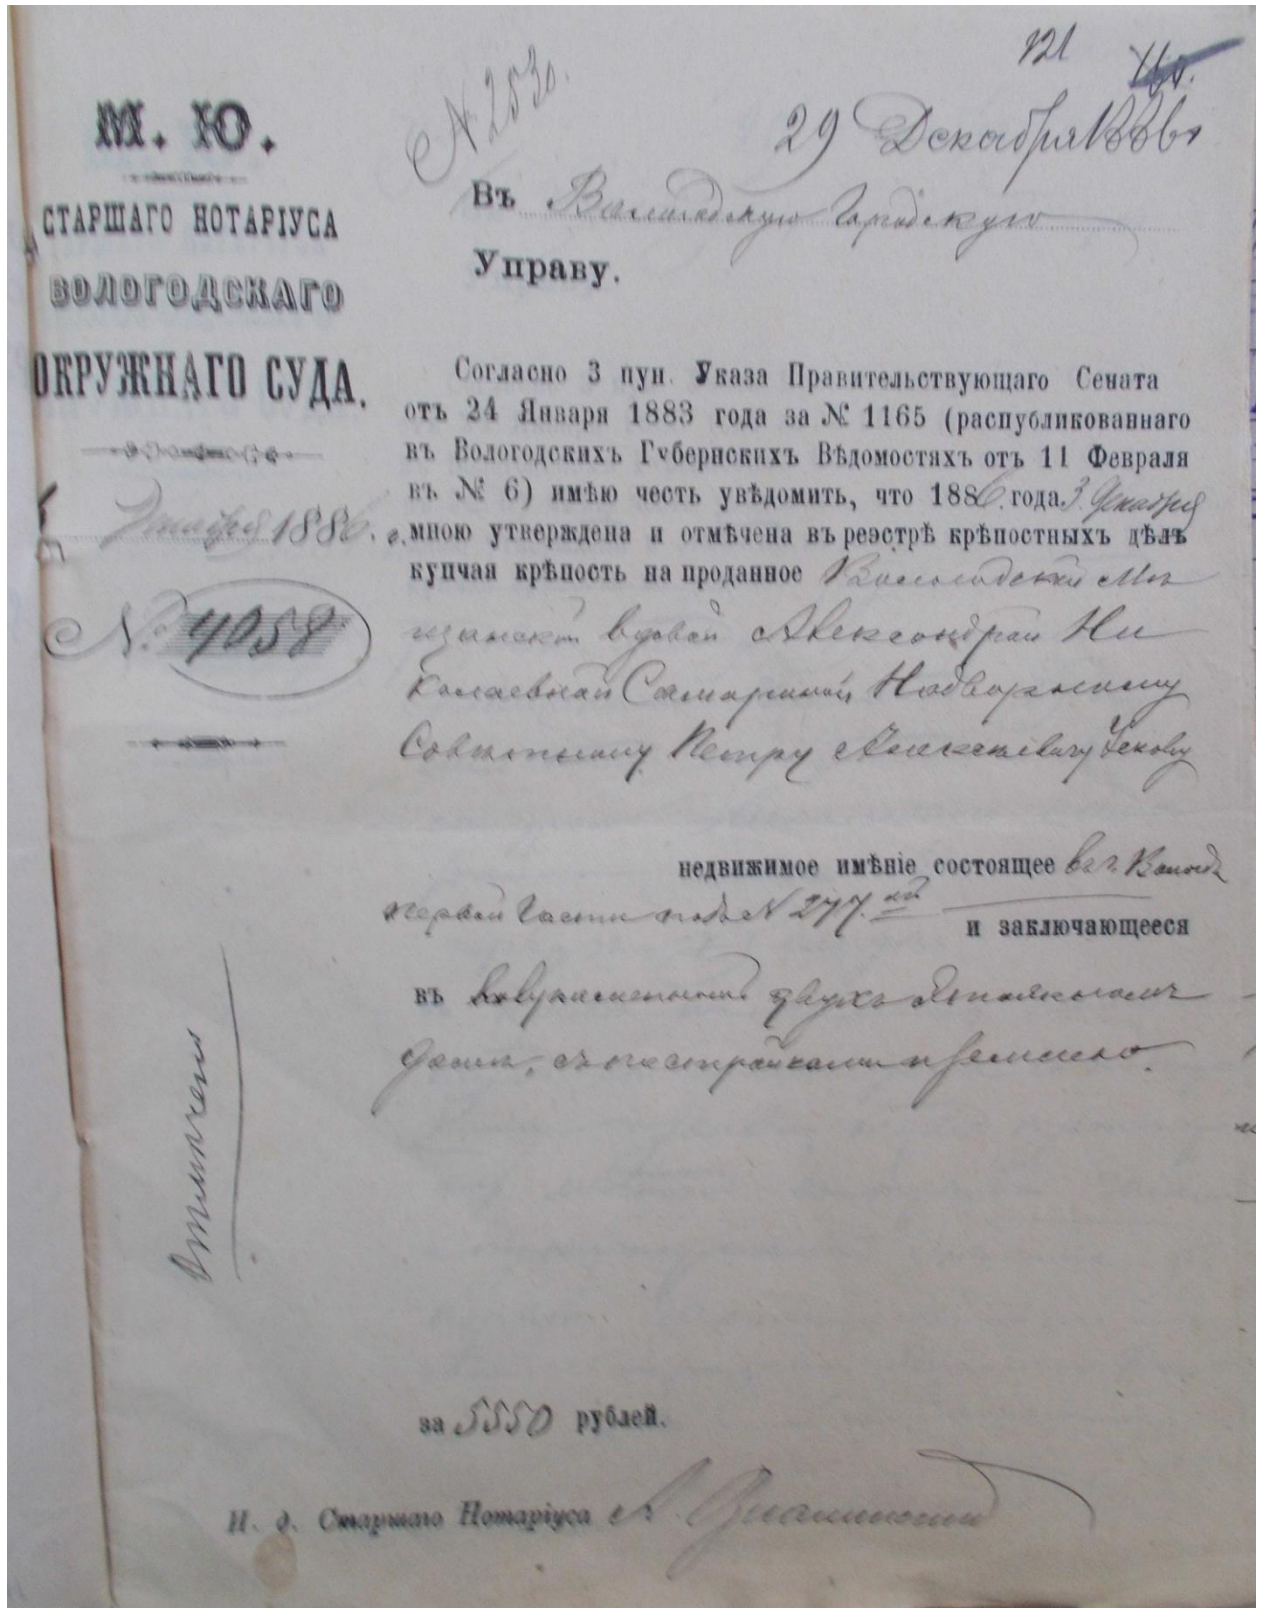 121
№ 2530.
29 Декабря 1886 г
М. Ю.
СТАРШАГО НОТАРІУСА
ВОЛОГОДСКАГО
ОКРУЖНАГО СУДА.
Декабря 1886 г.
№ 4058
Въ Вологодскую Городскую
Управу.
Согласно 3 пун. Указа Правительствующаго Сената
отъ 24 Января 1883 года за № 1165 (распубликованнаго
въ Вологодскихъ Губернскихъ Вѣдомостяхъ отъ 11 Февраля
въ № 6) имѣю честь увѣдомить, что 1886 года 3 Декабря
мною утверждена и отмѣчена въ реэстрѣ крѣпостныхъ дѣлъ
купчая крѣпость на проданное Вологодской Мѣ
щанской вдовой Александрой Ни
колаевной Самариной Надворному
Совѣтнику Петру Алексѣевичу
недвижимое имѣніе состоящее въ г. Вологдѣ
первой части подъ № 277.
и заключающееся
въ двухъ этажномъ
домѣ, съ постройками и землею.
Отмѣчено
за 5550 рублей.
И. д. Старшаго Нотаріуса А.